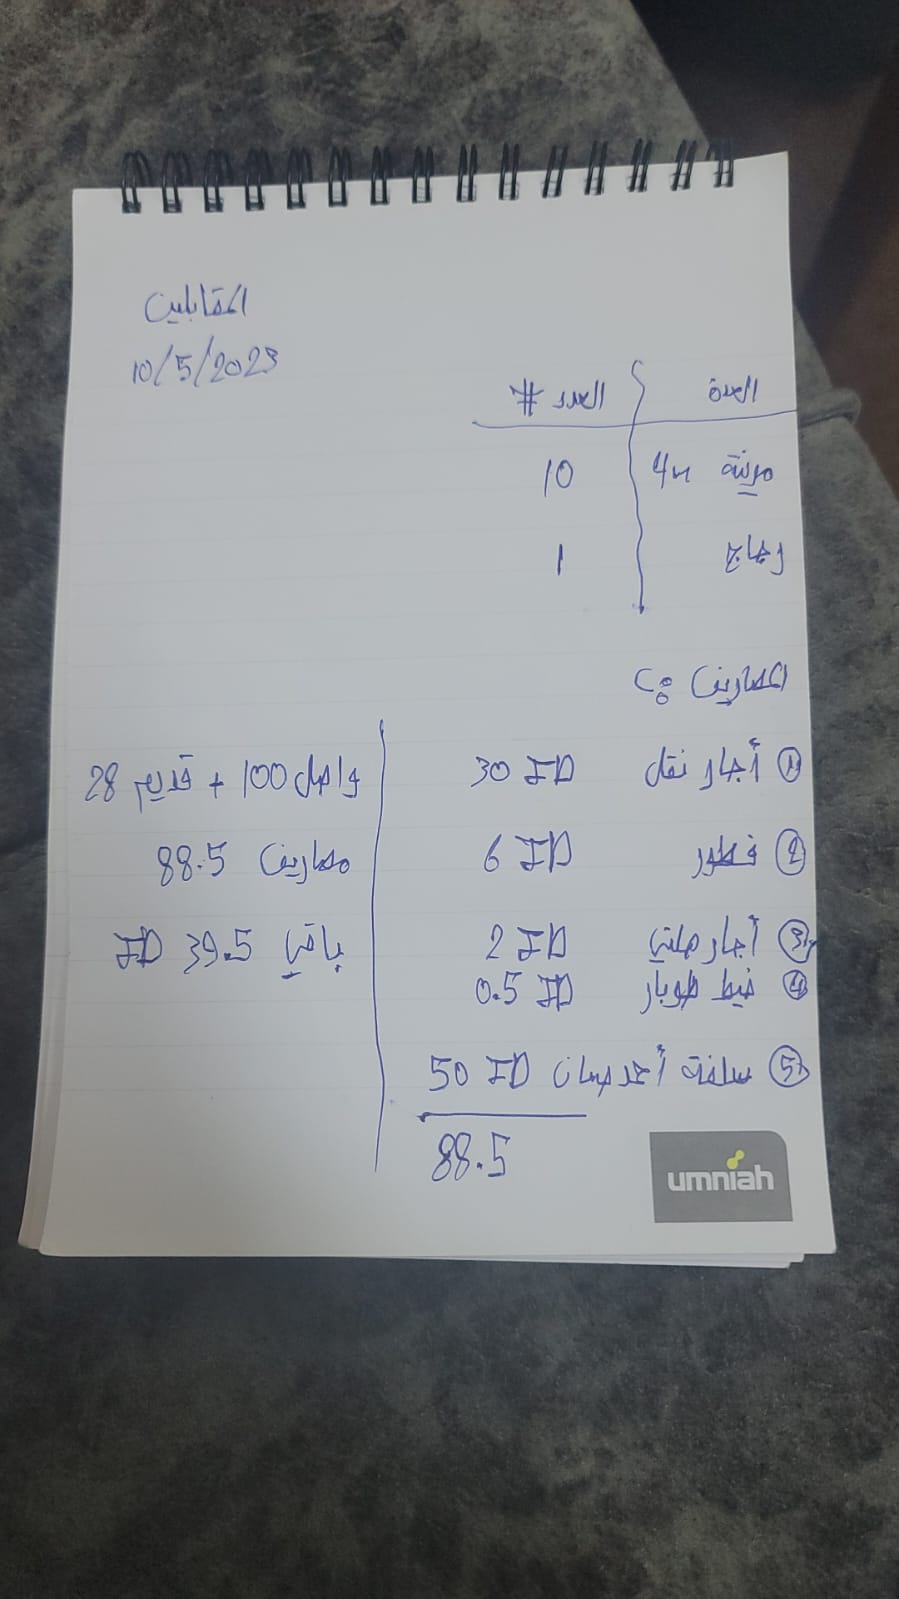 المقابلين
10/5/2023
العدة العدد #
مرنة 4m 10
زجاج 1
المصاريف :
① أجار نقل 30 JD
② فطور 6 JD
③ أجار ملتي 2 JD
④ خيط طوبار 0.5 JD
⑤ سلفة أحمد 50 JD
88.5
واصل 100 + قديم 28
مصاريف 88.5
باقي 39.5 JD
umniah